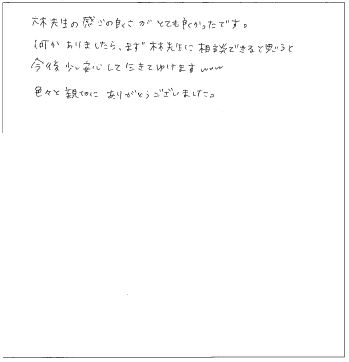 木先生の感じの良さがとても良かったです。
何かありましたら、まず木先生に相談できると思うと
今後少し安心して生きてゆけますwww
色々と親切にありがとうございました。